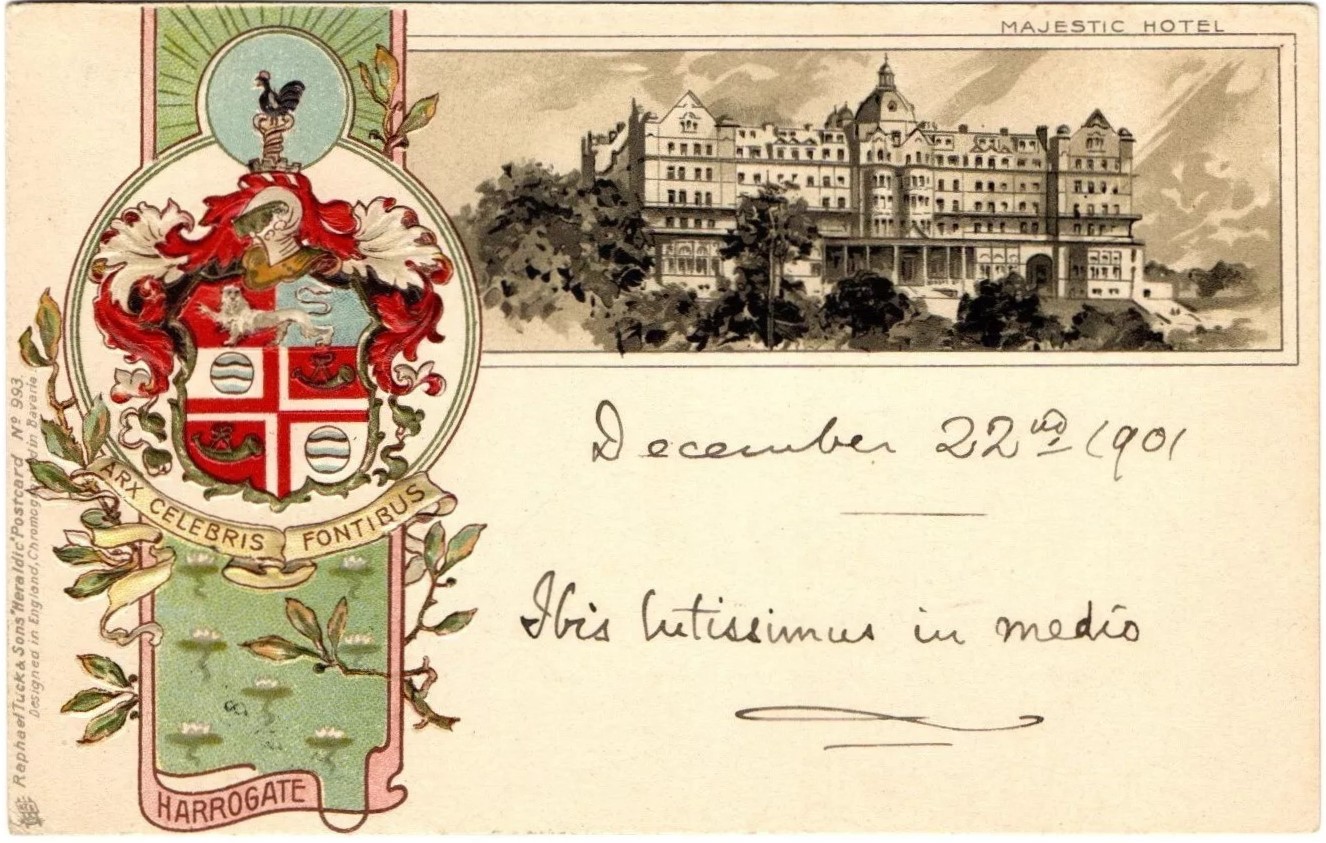 MAJESTIC HOTEL
ARX CELEBRIS FONTIBUS
December 22nd 1901
Ibis tutissimus in medio
HARROGATE
Raphael Tuck & Sons "Heraldic" Postcard Nº 993.
Designed in England, Chromographed in Bavaria.